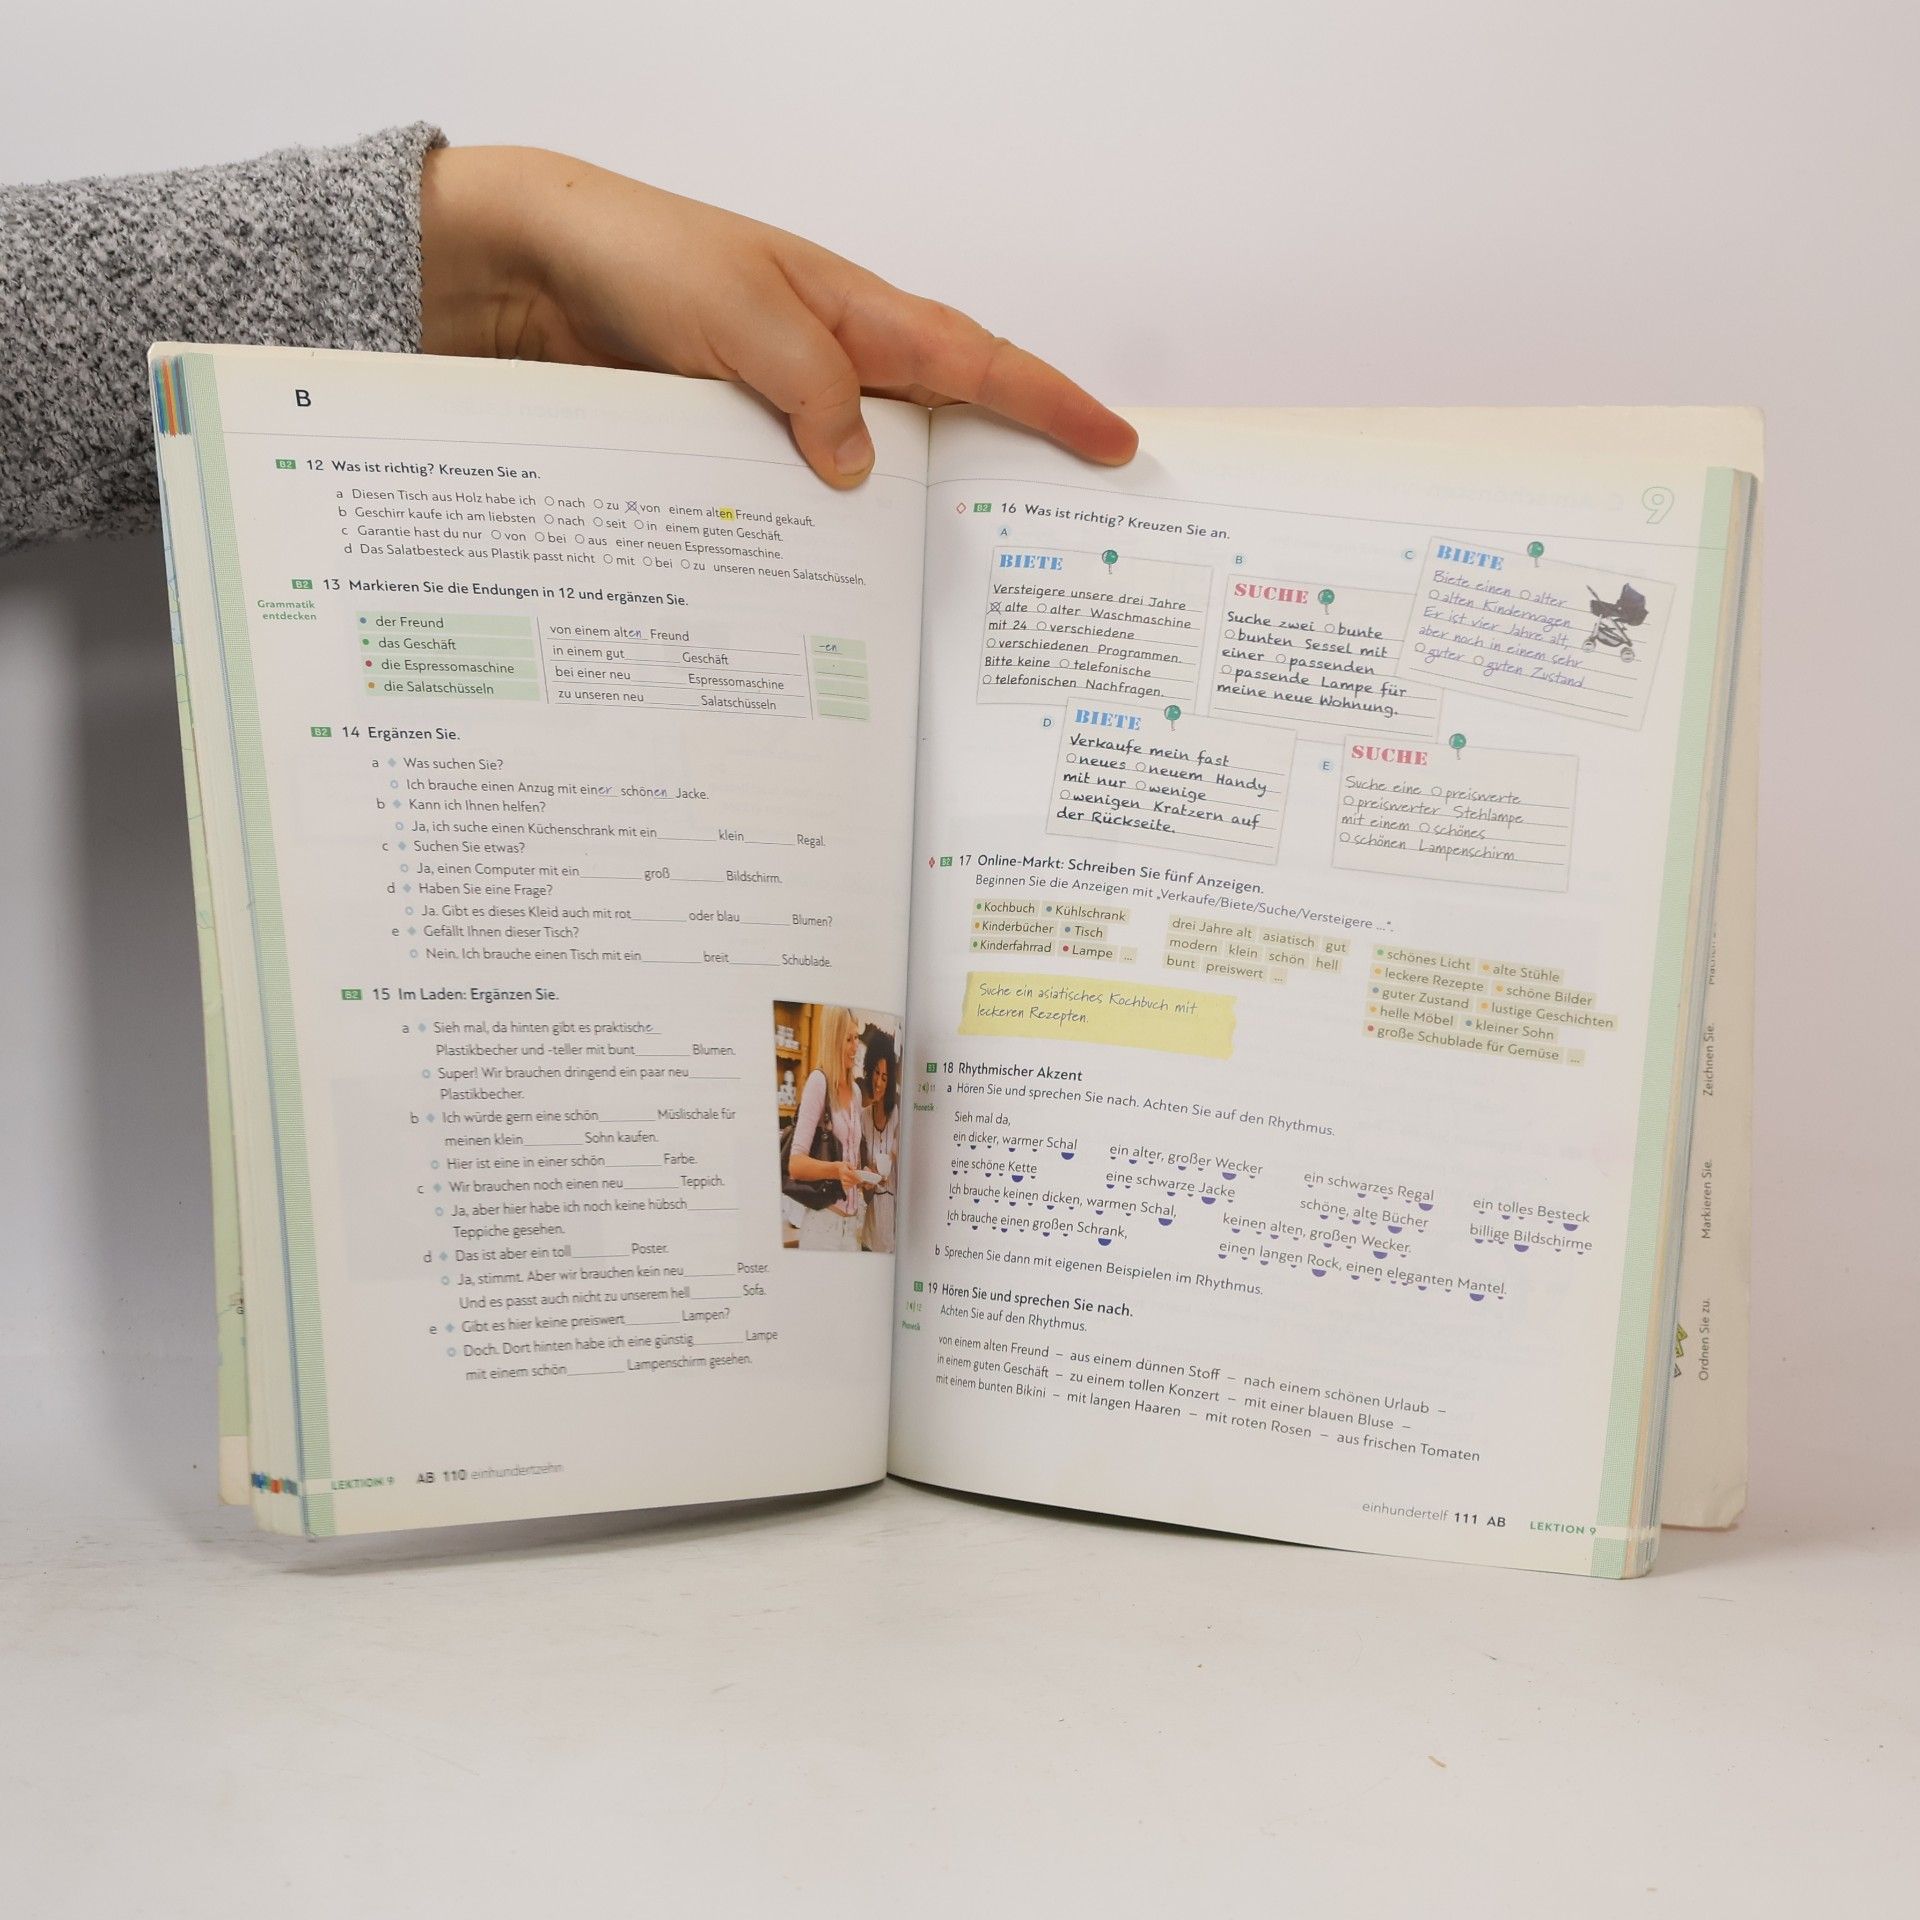 B
B2 12 Was ist richtig? Kreuzen Sie an.
a Diesen Tisch aus Holz habe ich O nach O zu ☒ von einem alten Freund gekauft.
b Geschirr kaufe ich am liebsten O nach O seit O in einem guten Geschäft.
c Garantie hast du nur O von O bei O aus einer neuen Espressomaschine.
d Das Salatbesteck aus Plastik passt nicht O mit O bei O zu unseren neuen Salatschüsseln.
B2 13 Markieren Sie die Endungen in 12 und ergänzen Sie.
Grammatik
entdecken
der Freund von einem alten Freund -en
das Geschäft in einem gut______ Geschäft
die Espressomaschine bei einer neu______ Espressomaschine
die Salatschüsseln zu unseren neu______ Salatschüsseln
B2 14 Ergänzen Sie.
a Was suchen Sie?
Ich brauche einen Anzug mit einer schönen Jacke.
b Kann ich Ihnen helfen?
Ja, ich suche einen Küchenschrank mit ein______ klein______ Regal.
c Suchen Sie etwas?
Ja, einen Computer mit ein______ groß______ Bildschirm.
d Haben Sie eine Frage?
Ja. Gibt es dieses Kleid auch mit rot______ oder blau______ Blumen?
e Gefällt Ihnen dieser Tisch?
Nein. Ich brauche einen Tisch mit ein______ breit______ Schublade.
B2 15 Im Laden: Ergänzen Sie.
a Sieh mal, da hinten gibt es praktische
Plastikbecher und -teller mit bunt______ Blumen.
Super! Wir brauchen dringend ein paar neu______
Plastikbecher.
b Ich würde gern eine schön______ Müslischale für
meinen klein______ Sohn kaufen.
Hier ist eine in einer schön______ Farbe.
c Wir brauchen noch einen neu______ Teppich.
Ja, aber hier habe ich noch keine hübsch______
Teppiche gesehen.
d Das ist aber ein toll______ Poster.
Ja, stimmt. Aber wir brauchen kein neu______ Poster.
Und es passt auch nicht zu unserem hell______ Sofa.
e Gibt es hier keine preiswert______ Lampen?
Doch. Dort hinten habe ich eine günstig______ Lampe
mit einem schön______ Lampenschirm gesehen.
LEKTION 9 AB 110 einhundertzehn
9
B2 16 Was ist richtig? Kreuzen Sie an.
A
BIETE
Versteigere unsere drei Jahre
☒ alte O alter Waschmaschine
mit 24 O verschiedene
O verschiedenen Programmen.
Bitte keine O telefonische
O telefonischen Nachfragen.
B
SUCHE
Suche zwei O bunte
O bunten Sessel mit
einer O passenden
O passende Lampe für
meine neue Wohnung.
C
BIETE
Biete einen O alter
O alten Kinderwagen
Er ist vier Jahre alt,
aber noch in einem sehr
O guter O guten Zustand
D
BIETE
Verkaufe mein fast
O neues O neuem Handy
mit nur O wenige
O wenigen Kratzern auf
der Rückseite.
E
SUCHE
Suche eine O preiswerte
O preiswerter Stehlampe
mit einem O schönes
O schönen Lampenschirm
B2 17 Online-Markt: Schreiben Sie fünf Anzeigen.
Beginnen Sie die Anzeigen mit „Verkaufe/Biete/Suche/Versteigere ...“.
Kochbuch Kühlschrank
Kinderbücher Tisch
Kinderfahrrad Lampe ...
drei Jahre alt asiatisch gut
modern klein schön hell
bunt preiswert ...
schönes Licht alte Stühle
leckere Rezepte schöne Bilder
guter Zustand lustige Geschichten
helle Möbel kleiner Sohn
große Schublade für Gemüse ...
Suche ein asiatisches Kochbuch mit
leckeren Rezepten.
18 Rhythmischer Akzent
a Hören Sie und sprechen Sie nach. Achten Sie auf den Rhythmus.
Phonetik
Sieh mal da,
ein dicker, warmer Schal ein alter, großer Wecker ein schwarzes Regal ein tolles Besteck
eine schöne Kette eine schwarze Jacke schöne, alte Bücher billige Bildschirme
Ich brauche keinen dicken, warmen Schal, keinen alten, großen Wecker.
Ich brauche einen großen Schrank, einen langen Rock, einen eleganten Mantel.
b Sprechen Sie dann mit eigenen Beispielen im Rhythmus.
19 Hören Sie und sprechen Sie nach.
Achten Sie auf den Rhythmus.
Phonetik
von einem alten Freund – aus einem dünnen Stoff – nach einem schönen Urlaub –
in einem guten Geschäft – zu einem tollen Konzert – mit einer blauen Bluse –
mit einem bunten Bikini – mit langen Haaren – mit roten Rosen – aus frischen Tomaten
einhundertelf 111 AB LEKTION 9
Zeichnen Sie.
Markieren Sie.
Ordnen Sie zu.